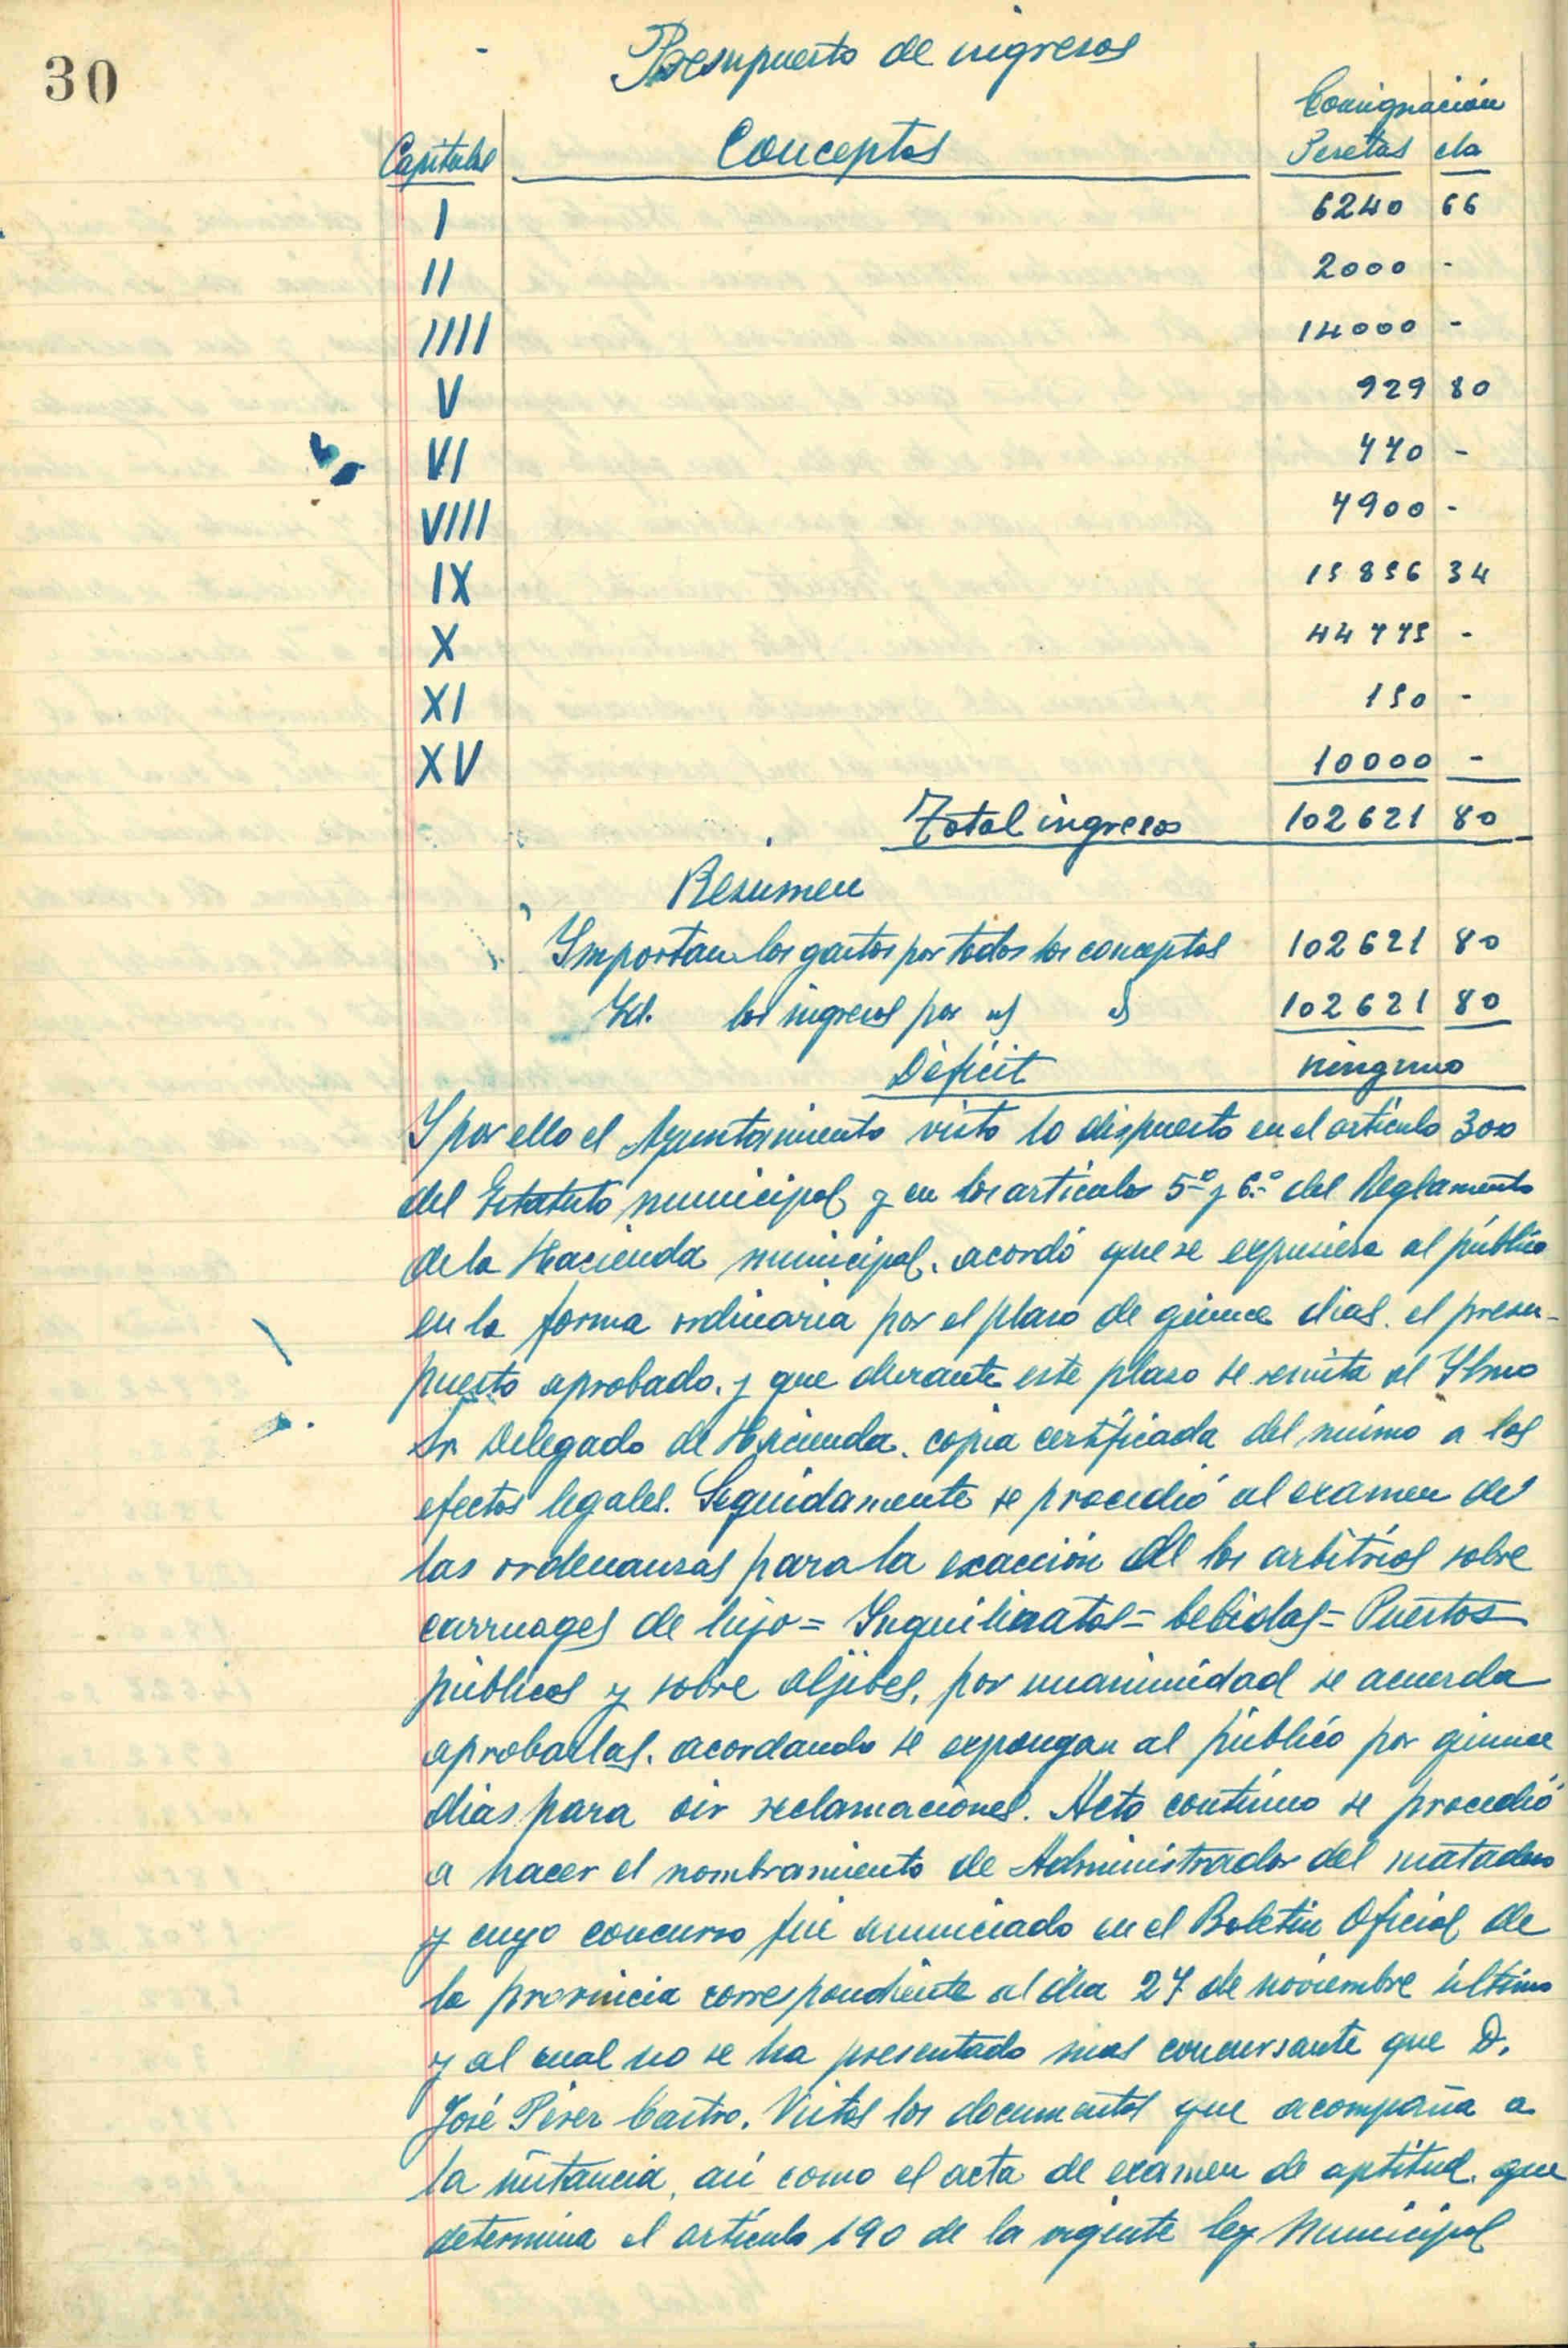 30
Presupuesto de ingresos
Consignación
Capitulos Conceptos Pesetas cts
I 6240 66
II 2000 -
IIII 14000 -
V 929 80
VI 770 -
VIIII 7900 -
IX 15856 34
X 44775 -
XI 150 -
XV 10000 -
Total ingresos 102621 80
Resumen
Importan los gastos por todos los conceptos 102621 80
Id. los ingresos por id id 102621 80
Déficit ninguno
Y por ello el Ayuntamiento visto lo dispuesto en el artículo 300
del Estatuto municipal y en los artículos 5º y 6º del Reglamento
de la Hacienda municipal, acordó que se expusiera al público
en la forma ordinaria por el plazo de quince dias, el presu-
puesto aprobado, y que durante este plazo se remita al Ilmo
Sr Delegado de Hacienda, copia certificada del mismo a los
efectos legales. Seguidamente se procedió al examen de
las ordenanzas para la exacción de los arbitrios sobre
carruages de lujo = Inquilinatos = bebidas = Puestos
públicos y sobre aljibes, por unanimidad se acuerda
aprobarlas, acordando se expongan al público por quince
dias para oir reclamaciones. Acto continuo se procedió
a hacer el nombramiento de Administrador del matadero
y cuyo concurso fue anunciado en el Boletin Oficial de
la provincia correspondiente al dia 27 de noviembre último
y al cual no se ha presentado mas concursante que D.
José Pérez Castro. Vistos los documentos que acompaña a
la instancia, asi como el acta de examen de aptitud, que
determina el artículo 190 de la vigente ley Municipal